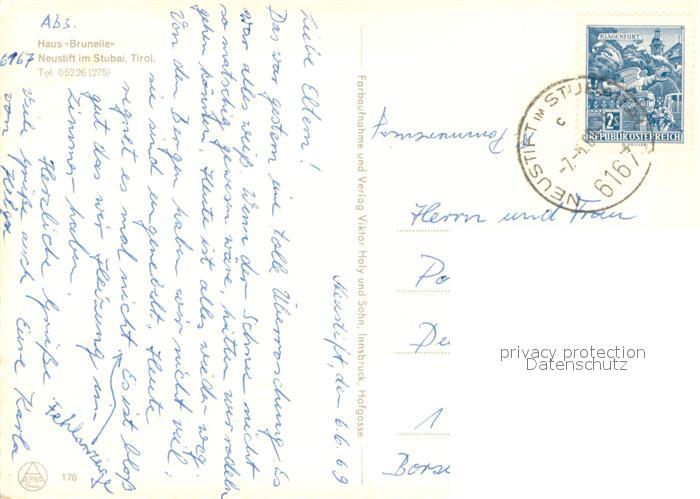 Abs.
Haus »Brunelle«
6167 Neustift im Stubai, Tirol,
Tel. 05226 (275)
Neustift, den 6.6.69
Liebe Eltern!
Das war gestern eine tolle Überraschung! Es
war alles weiß. Wenn der Schnee nicht
so matschig gewesen wäre, hätten wir rodeln
gehen können. Heute ist alles wieder weg.
Von den Bergen haben wir nicht viel,
sie sind eingenebelt. Heute
regnet es mal nicht. Es ist bloß
gut das wir Heizung im
Zimmer haben.
Fehlanzeige
Herzliche Grüße
Viele Grüße auch Eure Karla
von Holger
ALPINA
176
Farbaufnahme und Verlag Viktor Holy und Sohn, Innsbruck, Hofgasse
KLAGENFURT
2 S
REPUBLIK ÖSTERREICH
NEUSTIFT IM STUBAI
c
6167
Herrn und Frau
Po
De
1
Borse
privacy protection
Datenschutz